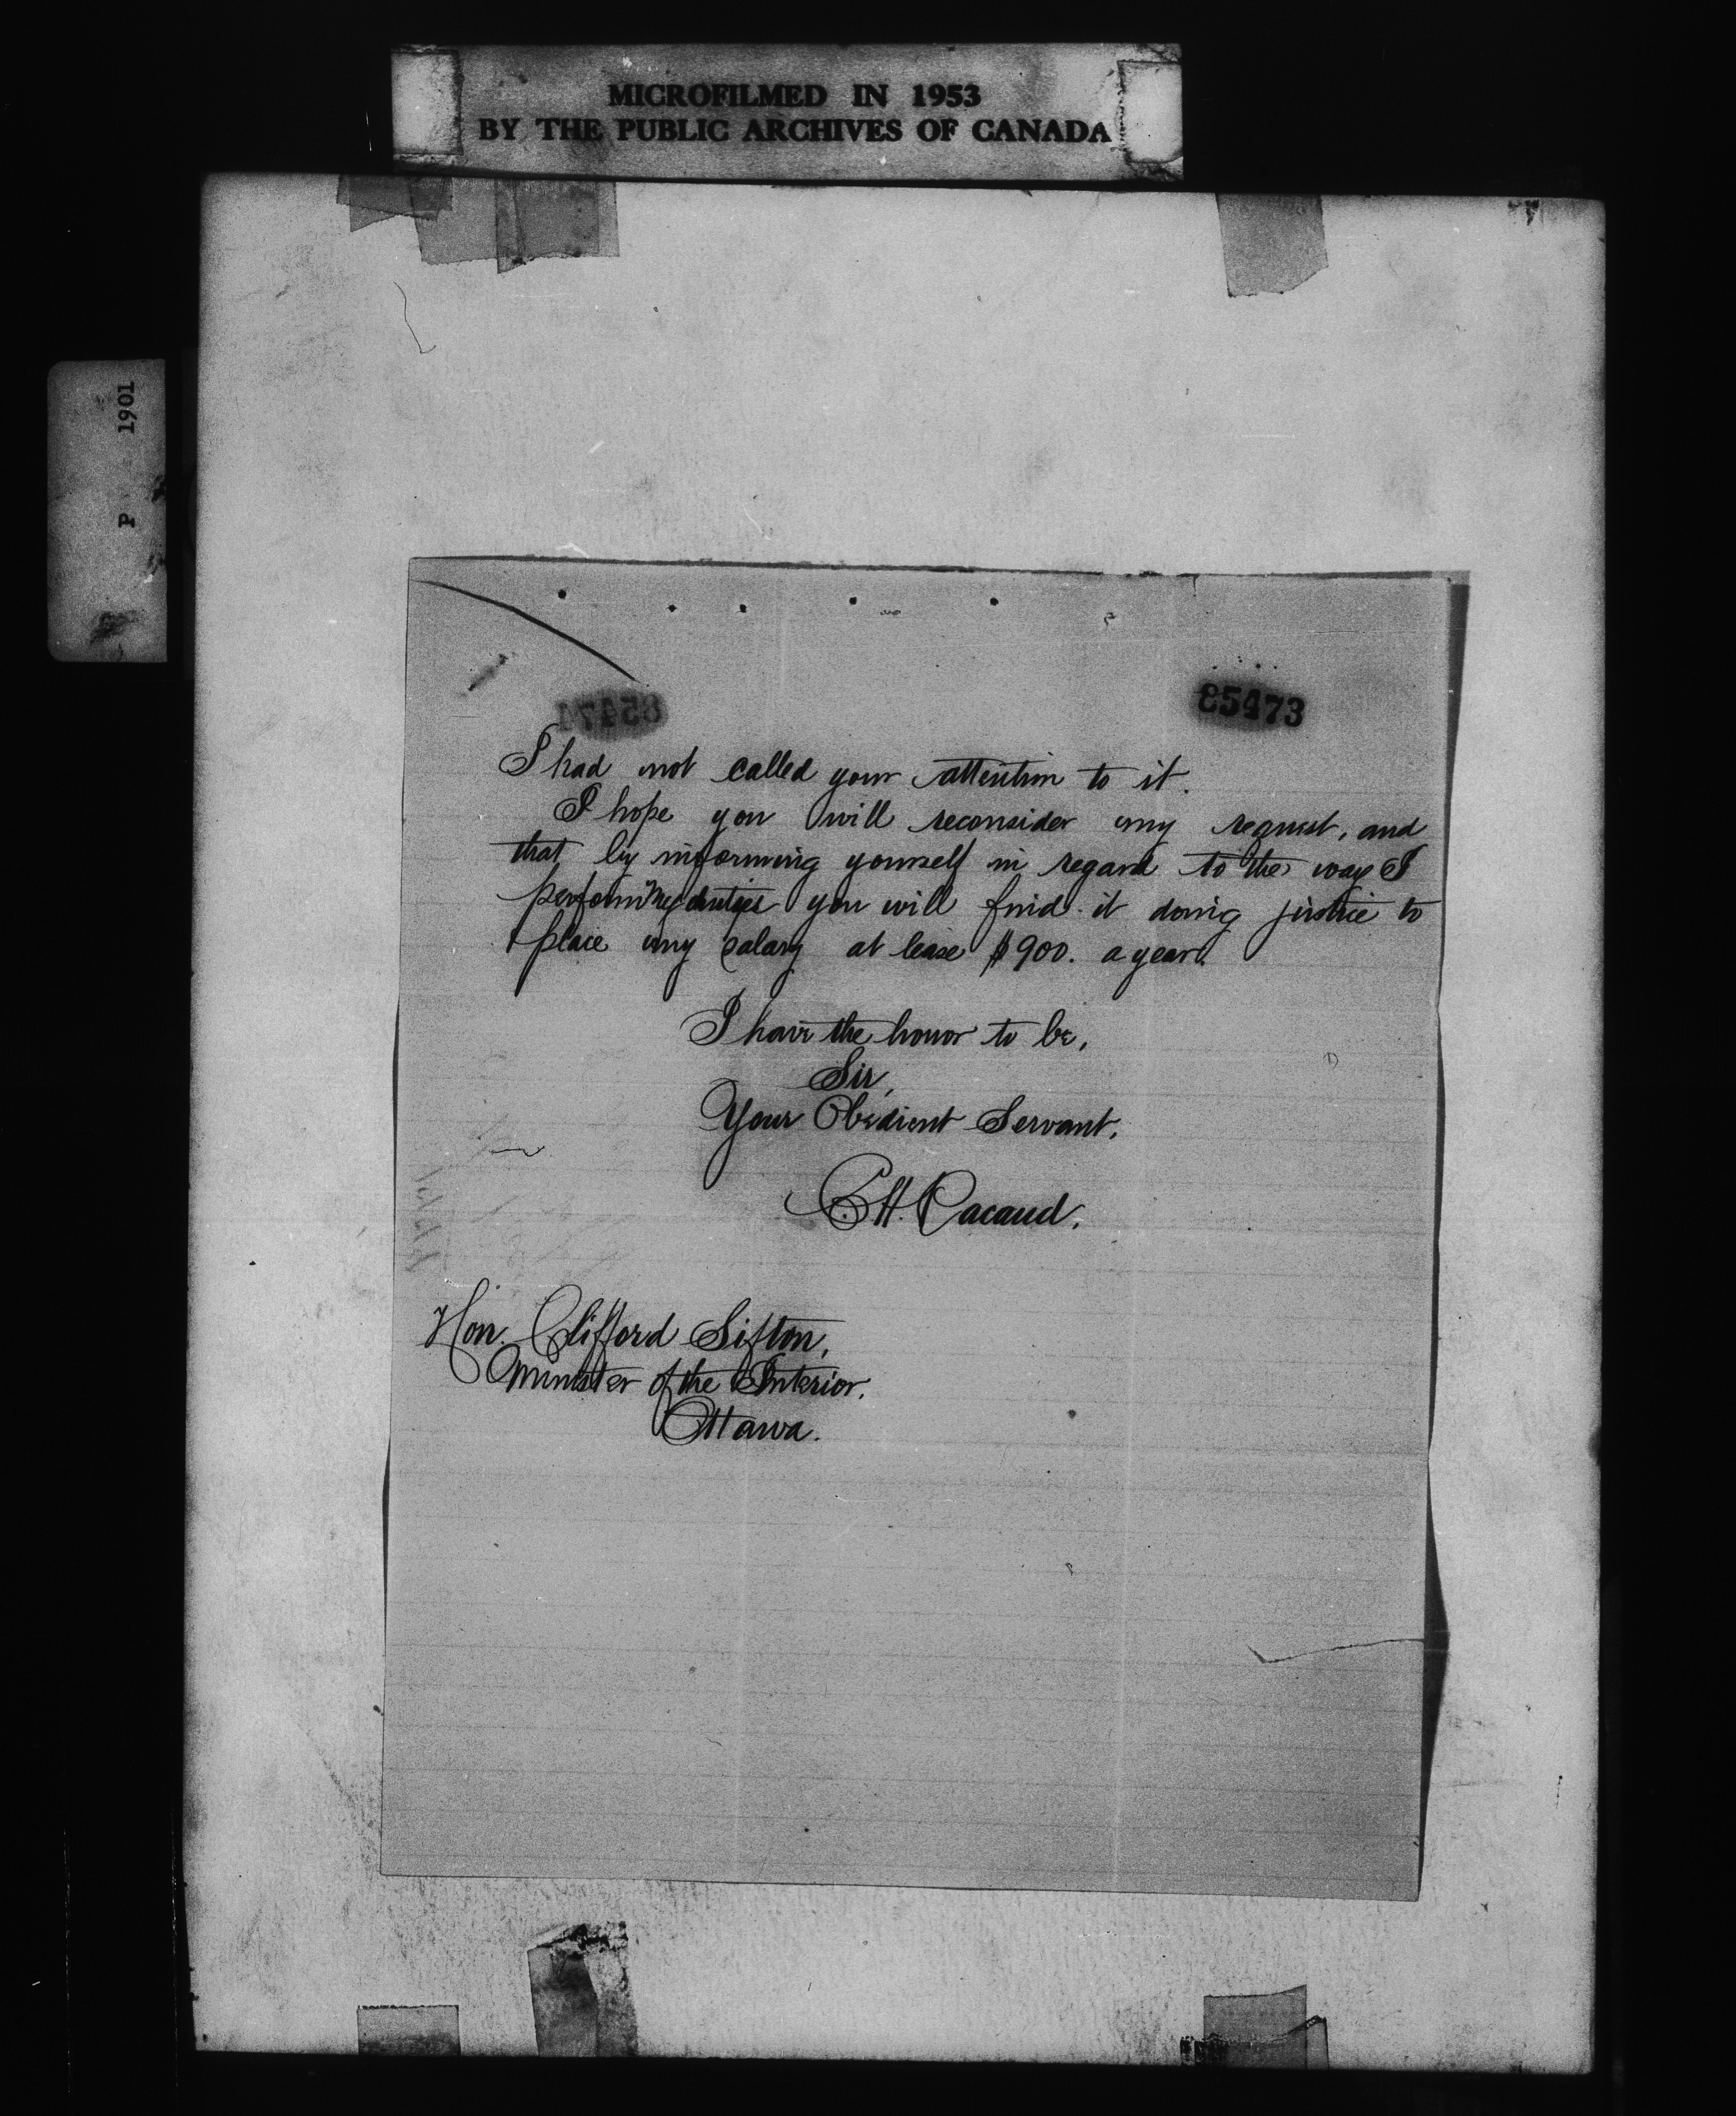 MICROFILMED IN 1953
BY THE PUBLIC ARCHIVES OF CANADA
P 1901
85473
I had not called your attention to it.
I hope you will reconsider my request, and
that by informing yourself in regard to the way I
perform my duties you will find it doing justice to
place my salary at lease $900. a year.
I have the honor to be,
Sir,
Your Obedient Servant,
E.H. Pacaud.
Hon. Clifford Sifton,
Minister of the Interior.
Ottawa.